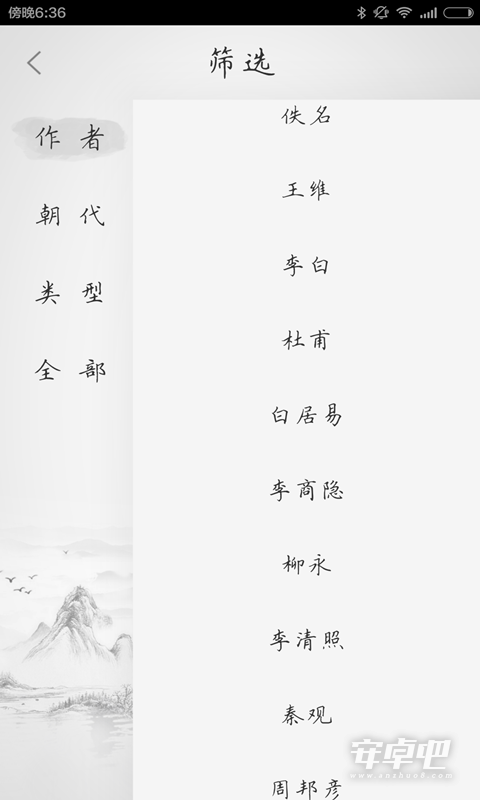 傍晚6:36
筛选
作者
朝代
类型
全部
佚名
王维
李白
杜甫
白居易
李商隐
柳永
李清照
秦观
周邦彦
安卓吧